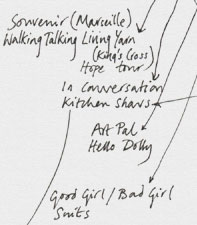 Souvenir (Marseille)
Walking Talking Living Yarn
(King's Cross)
Hope tour
In Conversation
Kitchen Shows
Art Pal
Hello Dolly
Good Girl / Bad Girl
Suits